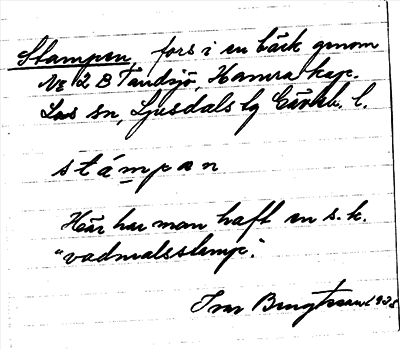 Stampen, fors i en bäck genom
No 2 B Tandsjö, Hamra kap.
Los sn, Ljusdals tg Gävleb. l.
stámpan
Här har man haft en s.k.
"vadmalsstamp".
Ivar Bengtsson 1935